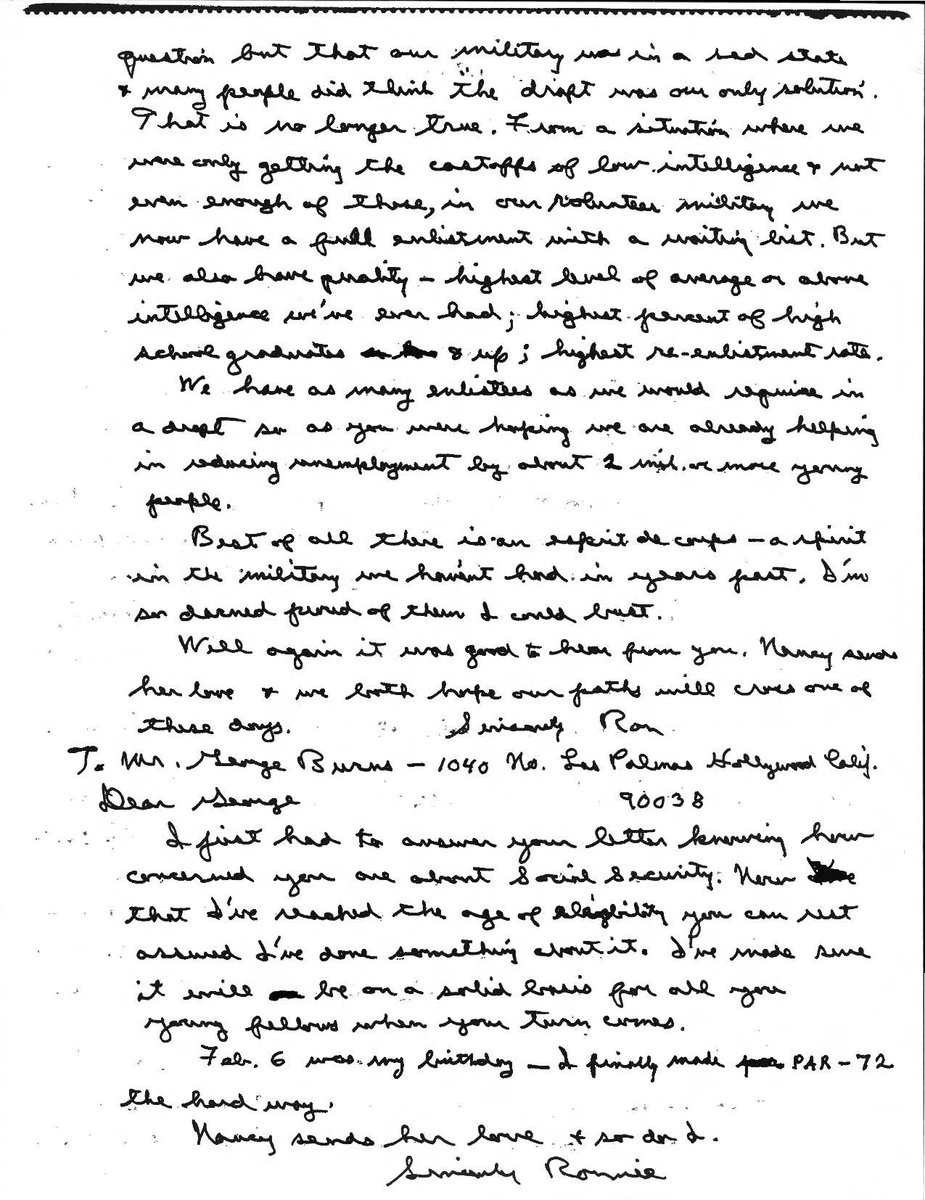 question but that our military was in a sad state
& many people did think the draft was our only solution.
That is no longer true. From a situation where we
were only getting the castoffs of low intelligence & not
even enough of those, in our volunteer military we
now have a full enlistment with a waiting list. But
we also have quality – highest level of average or above
intelligence we've ever had; highest percent of high
school graduates & up; highest re-enlistment rate.
We have as many enlistees as we would require in
a draft so as you were hoping we are already helping
in reducing unemployment by about 2 mil. or more young
people.
Best of all there is an esprit de corps – a spirit
in the military we haven't had in years past. I'm
so darned proud of them I could bust.
Well again it was good to hear from you. Nancy sends
her love & we both hope our paths will cross one of
these days. Sincerely Ron
To Mr. George Burns – 1040 No. Las Palmas Hollywood Calif.
Dear George 90038
I just had to answer your letter knowing how
concerned you are about Social Security. Now
that I've reached the age of eligibility you can rest
assured I've done something about it. I've made sure
it will be on a solid basis for all you
young fellows when your turn comes.
Feb. 6 was my birthday – I finally made PAR – 72
the hard way.
Nancy sends her love & so do I.
Sincerely Ronnie